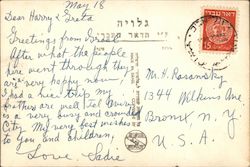 May 18
Dear Harry & Greta
Greetings from Israel
After what the people
here went through they
are very happy now. I
had a nice trip. My
brothers are well. Tel Aviv
is a very busy and crowded
City. My very best wishes
to you and children,
Love, Sadie
גלויה
15
Mr. H. Kasansky
1344 Wilkins Ave
Bronx, N.Y.
U.S.A.